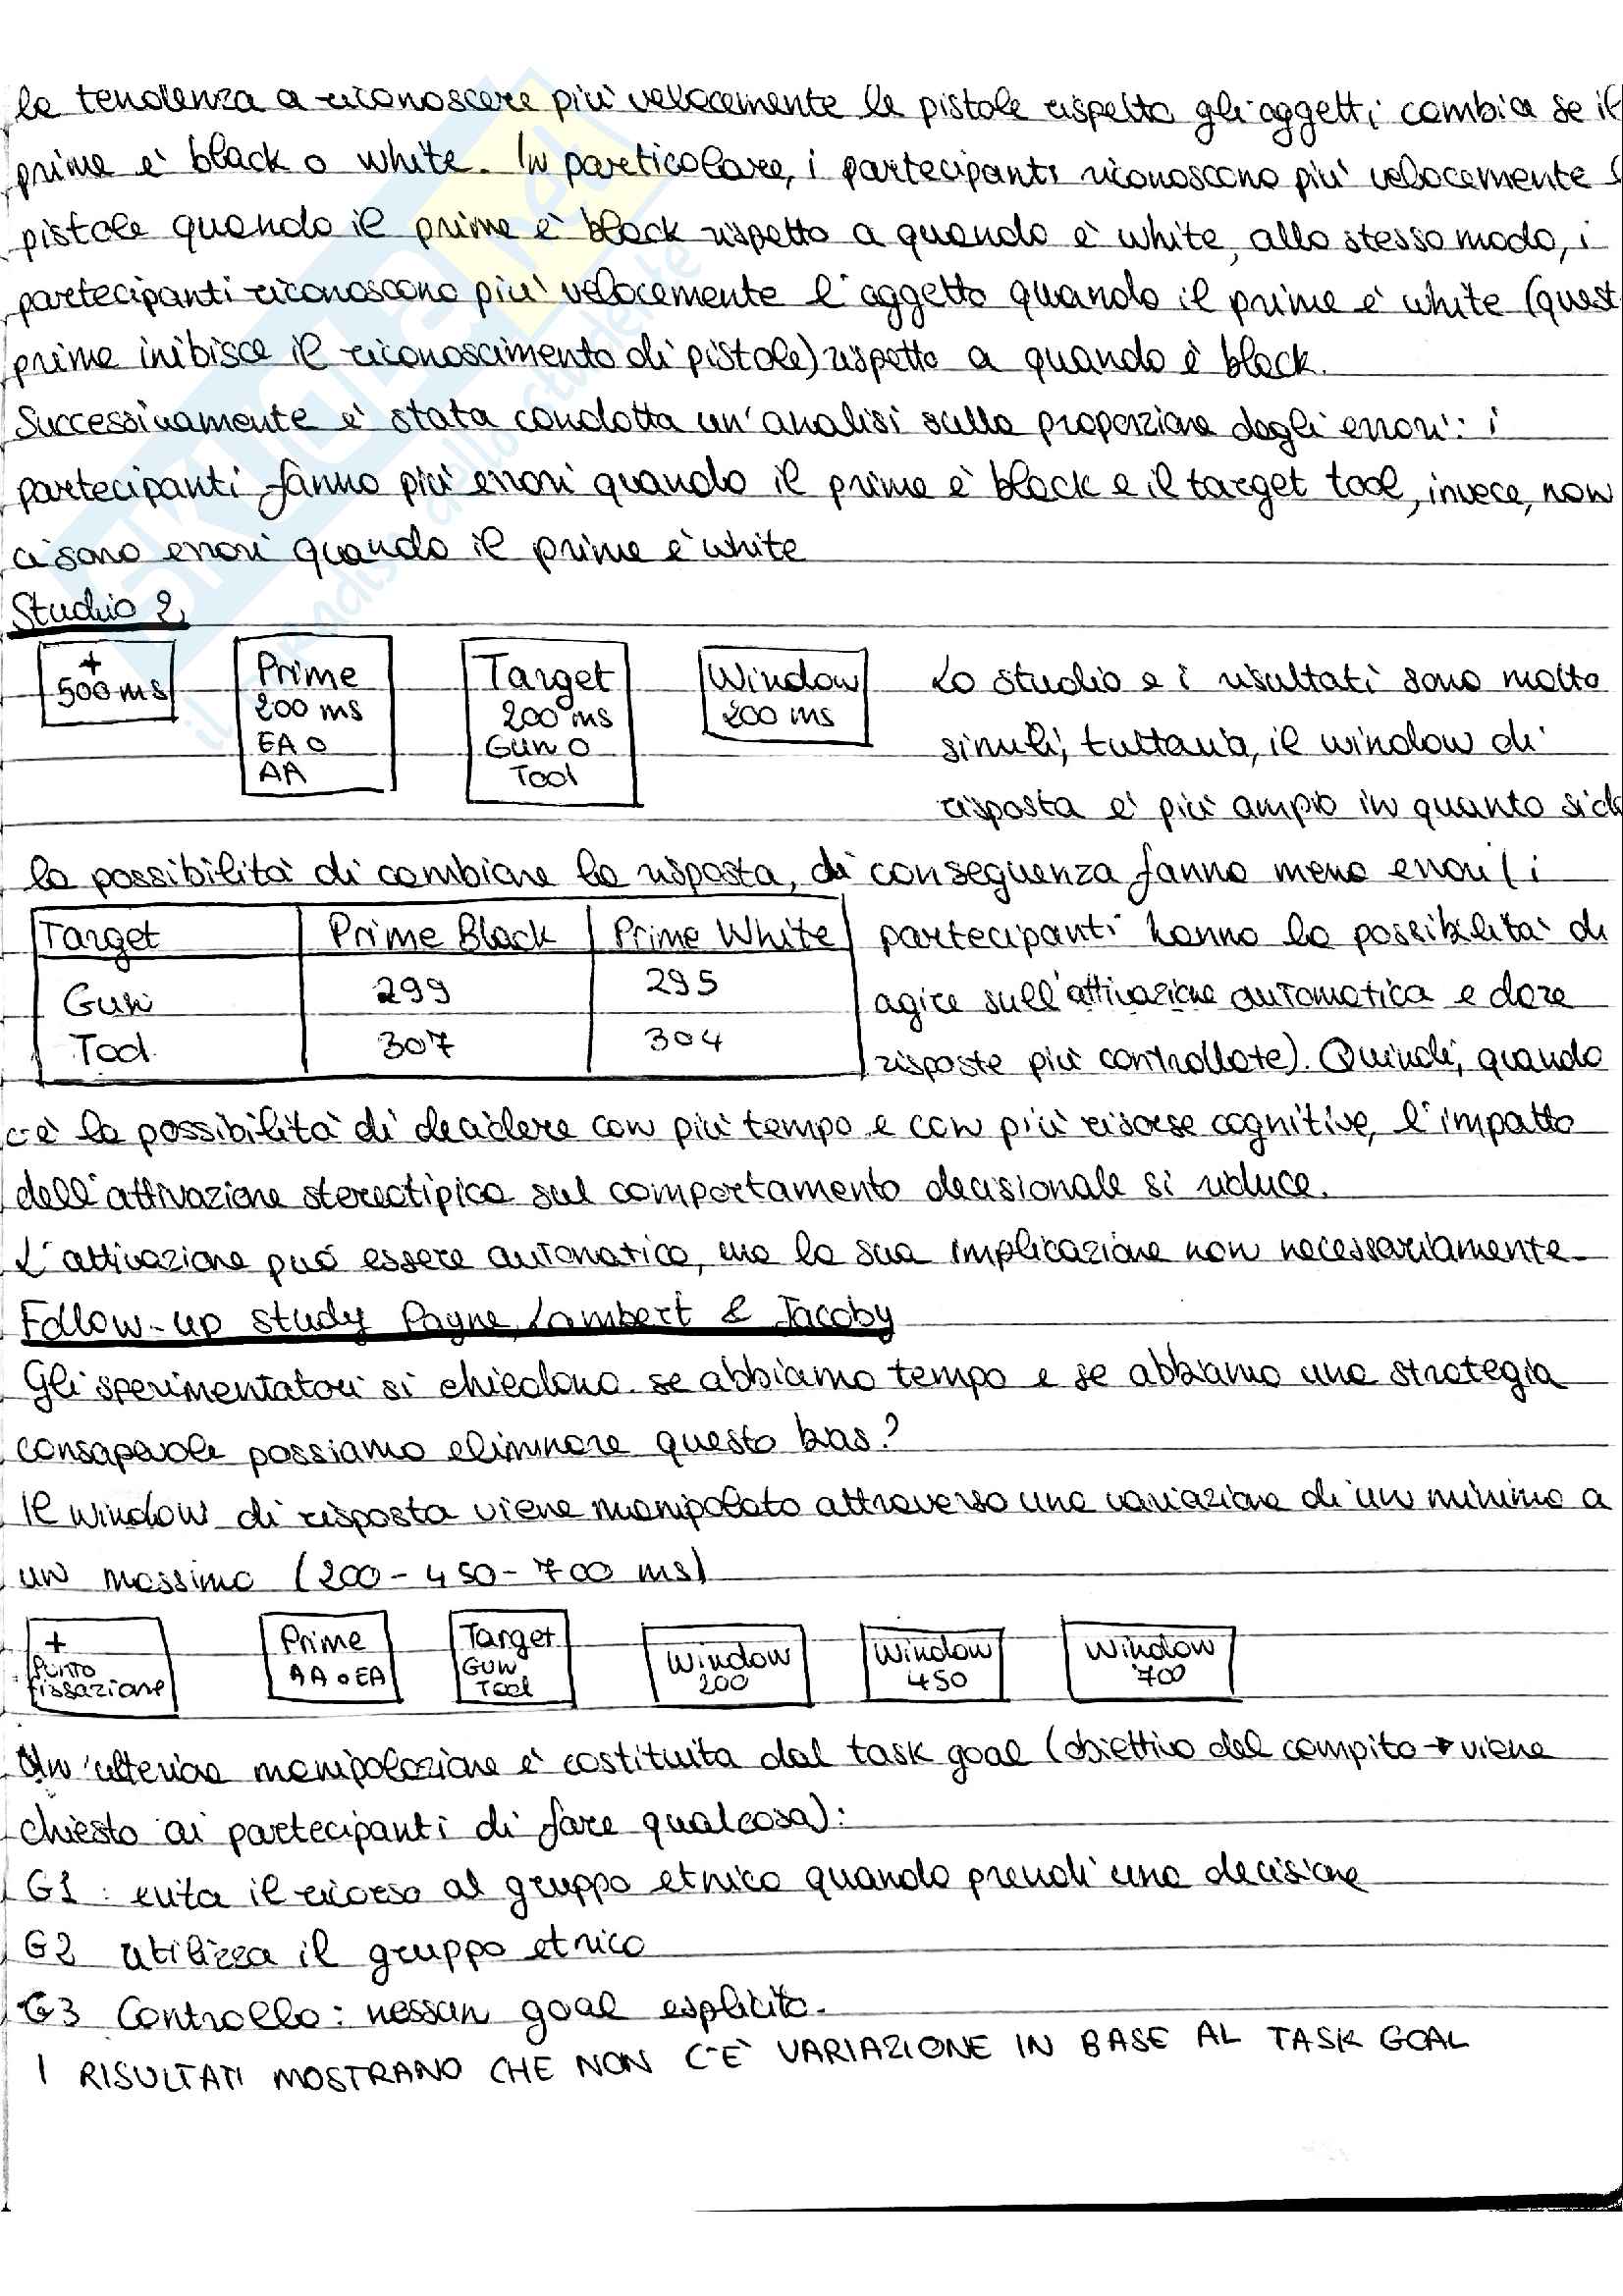 la tendenza a riconoscere più velocemente le pistole rispetto gli oggetti cambia se il
prime è black o white. In particolare, i partecipanti riconoscono più velocemente
pistole quando il prime è black rispetto a quando è white, allo stesso modo, i
partecipanti riconoscono più velocemente l'oggetto quando il prime è white (quest
prime inibisce il riconoscimento di pistole) rispetto a quando è black.
Successivamente è stata condotta un'analisi sulla proporzione degli errori: i
partecipanti fanno più errori quando il prime è black e il target tool, invece, non
ci sono errori quando il prime è white
Studio 2
+
500 ms
Prime
200 ms
EA o
AA
Target
200 ms
Gun o
Tool
Window
200 ms
Lo studio e i risultati sono molto
simili; tuttavia, il window di
risposta è più ampio in quanto si dà
la possibilità di cambiare la risposta, di conseguenza fanno meno errori (i
Target Prime Black Prime White
Gun 299 295
Tool 307 304
partecipanti hanno la possibilità di
agire sull'attivazione automatica e dare
risposte più controllate). Quindi, quando
c'è la possibilità di decidere con più tempo e con più risorse cognitive, l'impatto
dell'attivazione stereotipica sul comportamento decisionale si riduce.
L'attivazione può essere automatica, ma la sua implicazione non necessariamente.
Follow-up study Payne, Lambert & Jacoby
Gli sperimentatori si chiedono se abbiamo tempo e se abbiamo una strategia
consapevole possiamo eliminare questo bias?
Il window di risposta viene manipolato attraverso una variazione di un minimo a
un massimo (200 - 450 - 700 ms)
+
Punto
fissazione
Prime
AA o EA
Target
Gun
Tool
Window
200
Window
450
Window
700
Un'ulteriore manipolazione è costituita dal task goal (obiettivo del compito → viene
chiesto ai partecipanti di fare qualcosa):
G1: evita il ricorso al gruppo etnico quando prendi una decisione
G2 utilizza il gruppo etnico
G3 Controllo: nessun goal esplicito.
I RISULTATI MOSTRANO CHE NON C'È VARIAZIONE IN BASE AL TASK GOAL